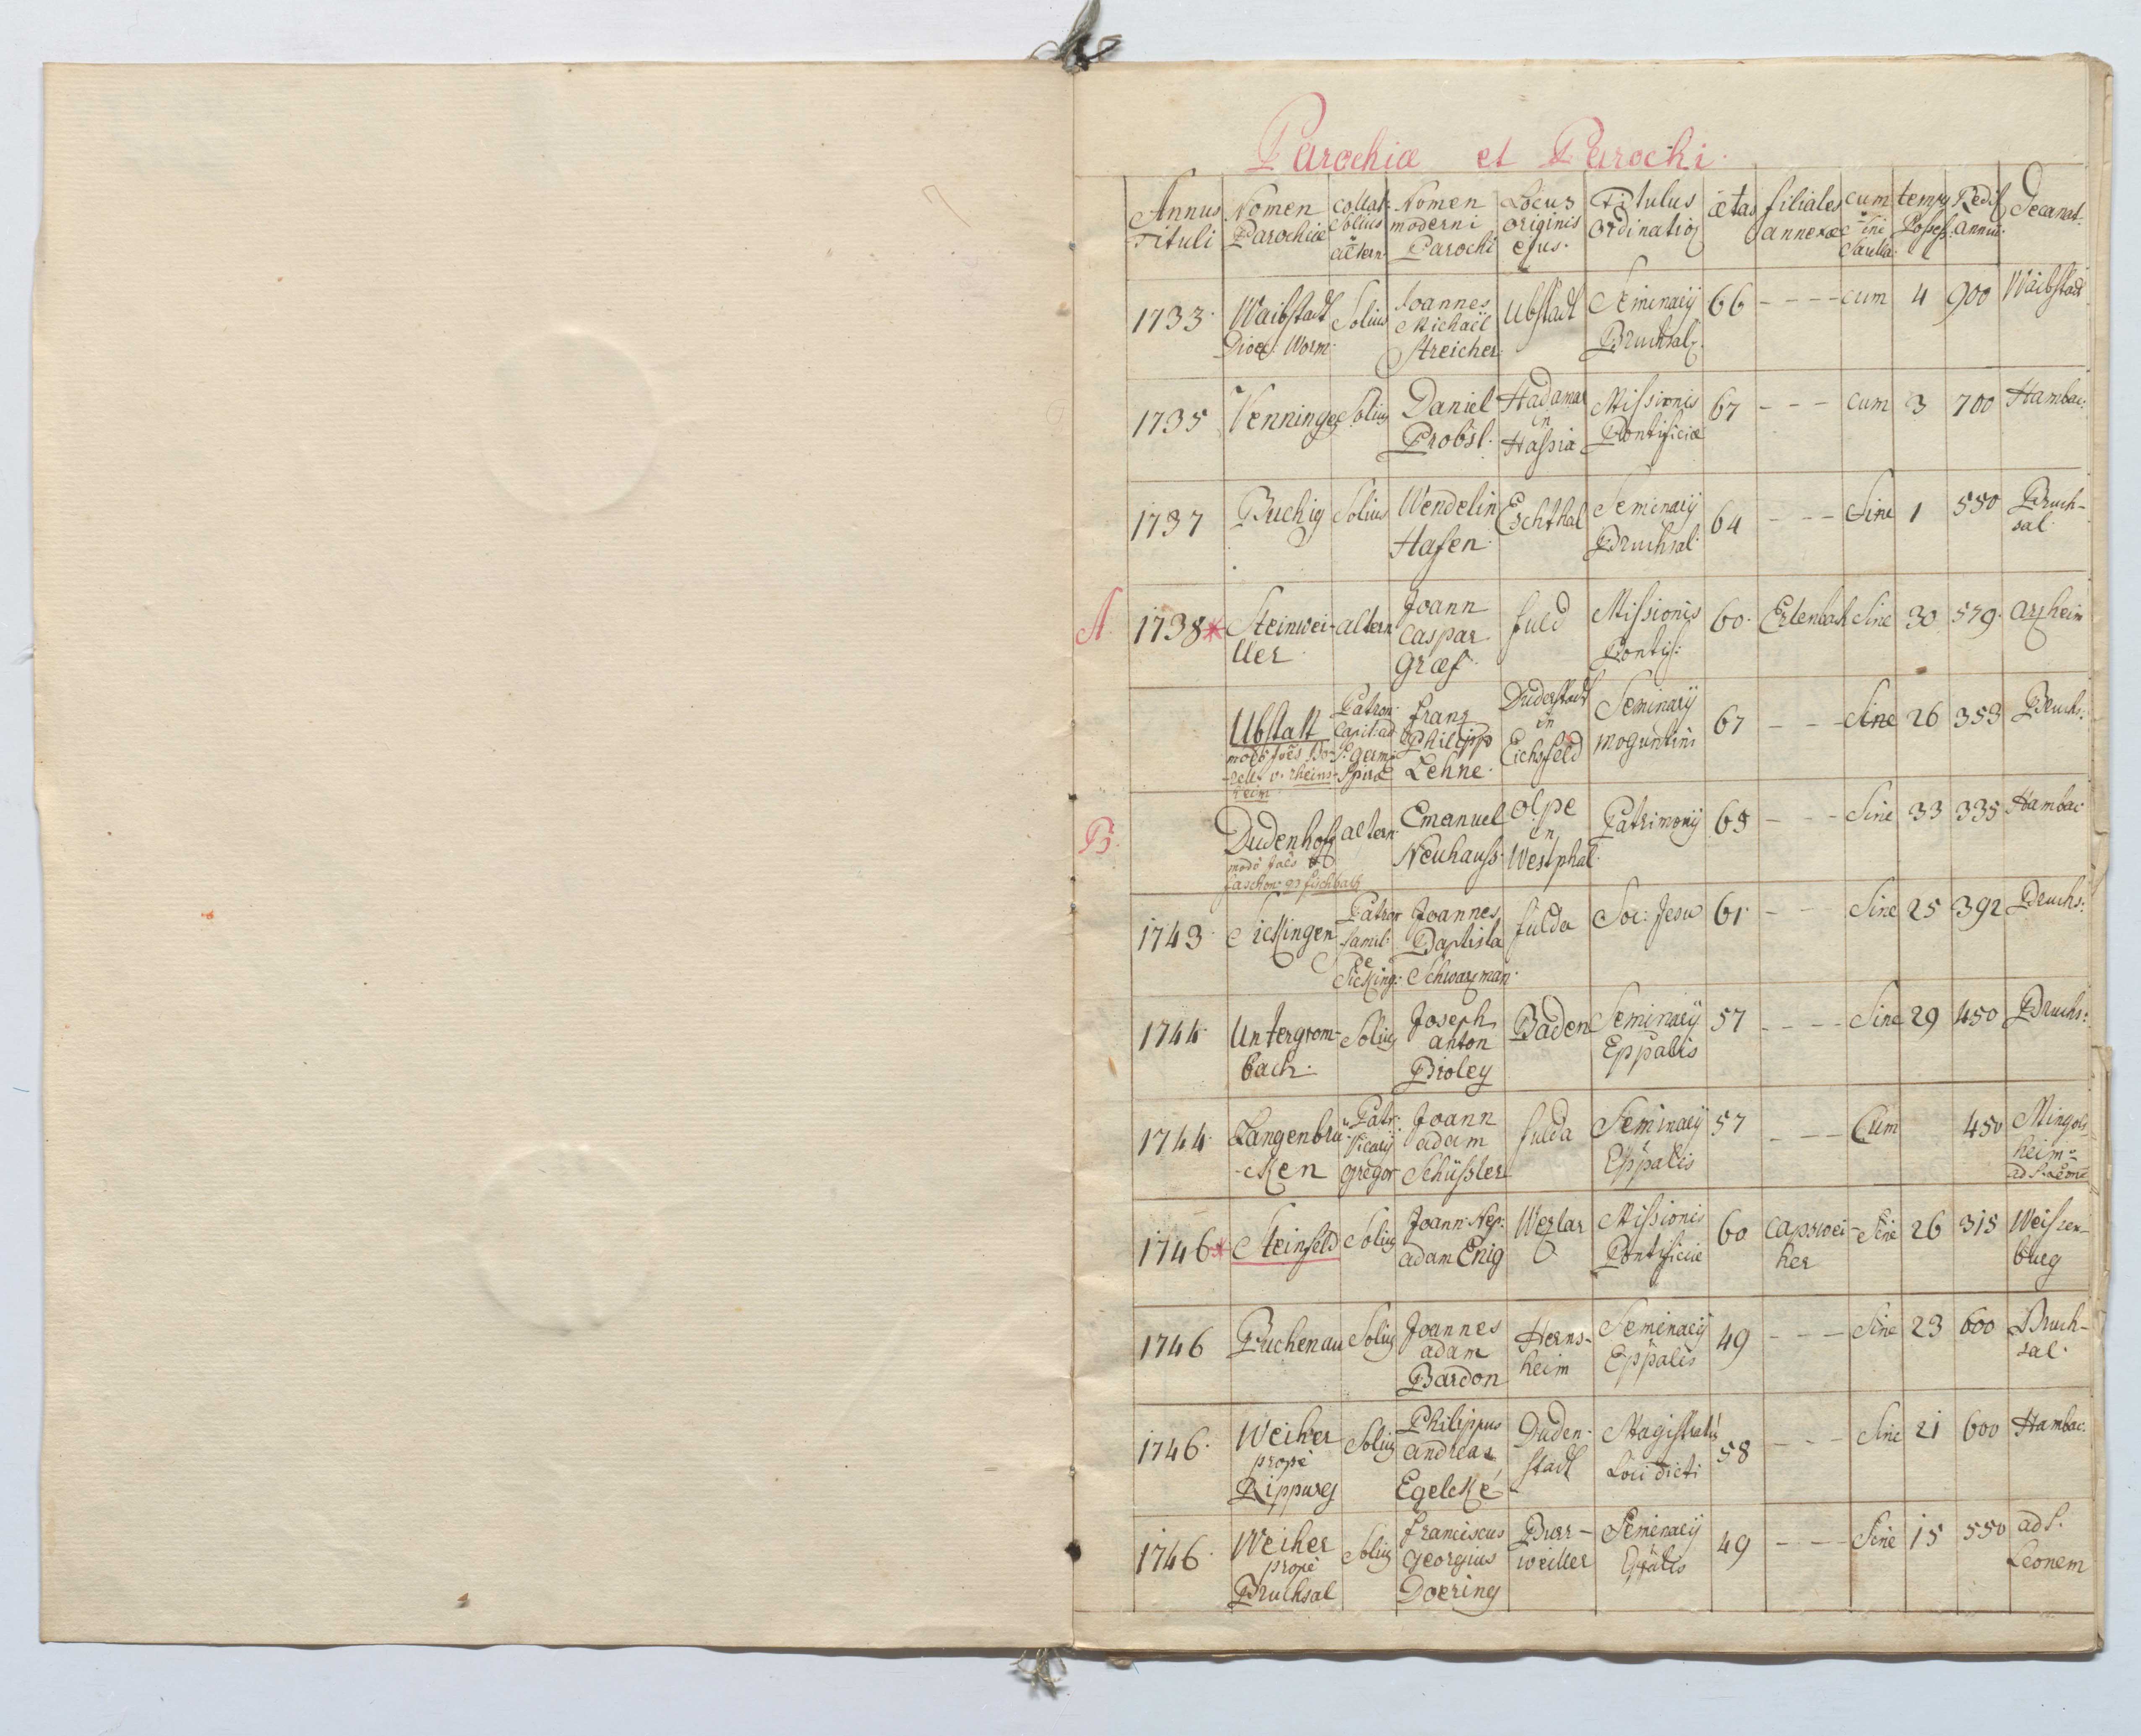 Parochiæ et Parochi.
Annus Tituli | Nomen Parochiæ | collat: Solius aut altern. | Nomen moderni Parochi | Locus originis ejus. | Titulus ordinatio͂is | ætas | filiales annexæ | cum sine | temp9 Posses: | Redit9 annui. | Decanat.
1733. | Waibstadt Dioec: Worm: | Solius | Joannes Michaël Streicher | Ubstadt | Seminarij Bruchsal: | 66 | - - - | cum | 4 | 900 | Waibstadt
1735 | Venningen | Solius | Daniel Probst. | Hadamar in Hassia | Missionis Pontificiæ | 67 | - - - | cum | 3 | 700 | Hambac:
1737 | Büchig | Solius | Wendelin Hafen. | Eschthal | Seminarij Bruchsal. | 64 | - - - | Sine | 1 | 550 | Bruch-sal.
A. 1738* | Steinwei-ller. | altern | Joann Caspar Græf. | fuld | Missionis Pontif: | 60. | Erlenbach | Sine | 30 | 579. | Arzheim
Ubstatt modo | Patron. S. Germ: Spiræ | franz Philipp Lehne. | Duderstadt in Eichsfeld | Seminarij moguntini | 67 | - - - | Sine | 26 | 353 | Bruchs:
B. Dudenhoff modo | altern | Emanuel Neuhauss. | olpe in Westphal. | Patrimonij | 65 | - - - | Sine | 33 | 335 | Hambac:
1743. | Sickingen | Patron famil: de Sicking: | Joannes Baptista Schwarzman. | fulda | Soc: Jesu | 61. | - - - | Sine | 25 | 392 | Bruchs:
1744. | Untergrom-bach. | Solius | Joseph anton Broley | Baden | Seminarij Eppalis | 57 | - - - | Sine | 29 | 450 | Bruchs:
1744. | Langenbrü-cken | Patr: Vicarij gregor | Joann adam Schüssler | fulda | Seminarij Eppalis | 57 | - - - | Cum | 450 | Mingols-heim ad S. Leone
1746* | Steinfeld | Solius | Joann Nep: adam Enig | Wezlar | Missionis Pontificiæ | 60 | Capswei-her | Sine | 26 | 315 | Weissen-burg
1746 | Büchenau | Solius | Joannes adam Bardon | Herns-heim | Seminarij Eppalis | 49 | - - - | Sine | 23 | 600 | Bruch-sal.
1746. | Weiher prope Rippurg | Solius | Philippus andreas Egelcké | Duden-stadt | Magistratus Loci dicti | 58 | - - - | Sine | 21 | 600 | Hambac:
1746. | Weiher prope Bruchsal | Solius | franciscus georgius Doering | Burr-weiller | Seminarij Eppalis | 49 | - - - | Sine | 15 | 550 | ad S. Leonem